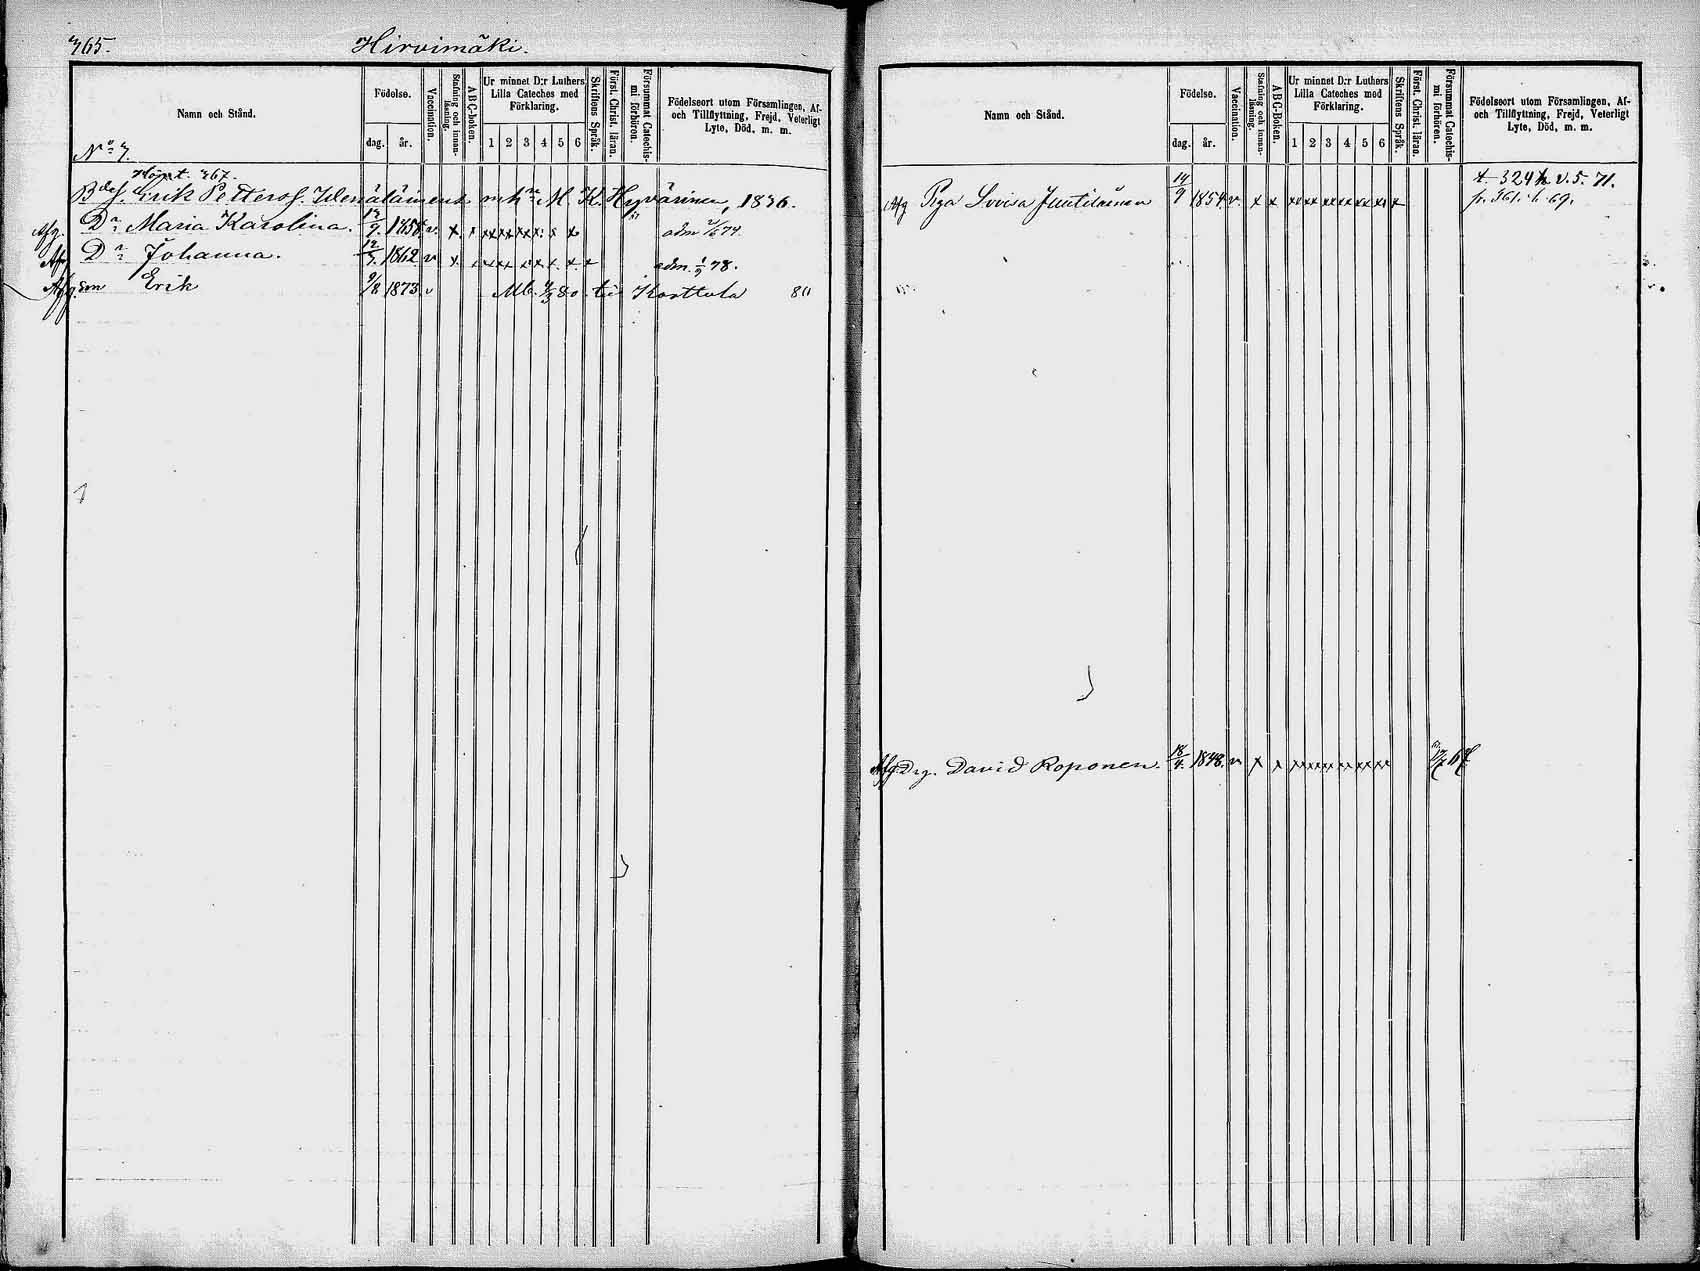 365. Hirvimäki.
Namn och Stånd.
Födelse.
dag. år.
Vaccination.
Stafning och innanläsning.
ABC-boken.
Ur minnet D:r Luthers Lilla Cateches med Förklaring.
1 2 3 4 5 6
Skriftens Språk.
Först. Christ. läran.
Försummat Catechismi förhören.
Födelseort utom Församlingen, Af- och Tillflyttning, Frejd, Veterligt Lyte, Död, m. m.
No 7.
367.
Erik Petterss. M. K. Hyvärinen, 1836.
Afg. Dr Maria Karolina. 1858 v. x x xx xx xx x adm 74
Afg Dr Johanna. 12/7. 1862 v x. x x x x x x x adm. 78.
Afg. son Erik 9/8 1873 v Mb. 80 till Karttula 80
Namn och Stånd.
Födelse.
dag. år.
Vaccination.
Stafning och innanläsning.
ABC-Boken.
Ur minnet D:r Luthers Lilla Cateches med Förklaring.
1 2 3 4 5 6
Skriftens Språk.
Först. Christ. läran.
Försummat Catechismi förhören.
Födelseort utom Församlingen, Af- och Tillflyttning, Frejd, Veterligt Lyte, Död, m. m.
Afg Piga Lovisa Juutilainen 14/9 1854. v. x x xx xx xx xx xx xx x 324 v. 5. 71.
fr. 361. 69.
Afg. Drg. David Roponen. 18/4. 1848. v x x xx xx xx xx xx xx 67